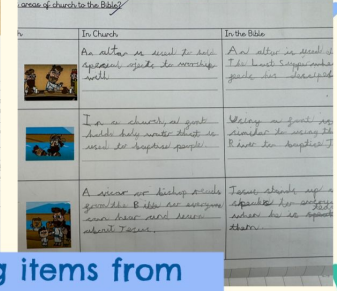 areas of church to the Bible?
In Church
In the Bible
An altar is used to hold
special ojects to worship
with
An altar is used
The Last Supper
In a church, a font
holds holy water that is
used to baptise people.
Using a font is
similar to using the
River to baptise J
A vicar or bishop reads
from the Bible so everyone
can hear and learn
about Jesus.
Jesus stands up
speaks
when he is
them
g items from